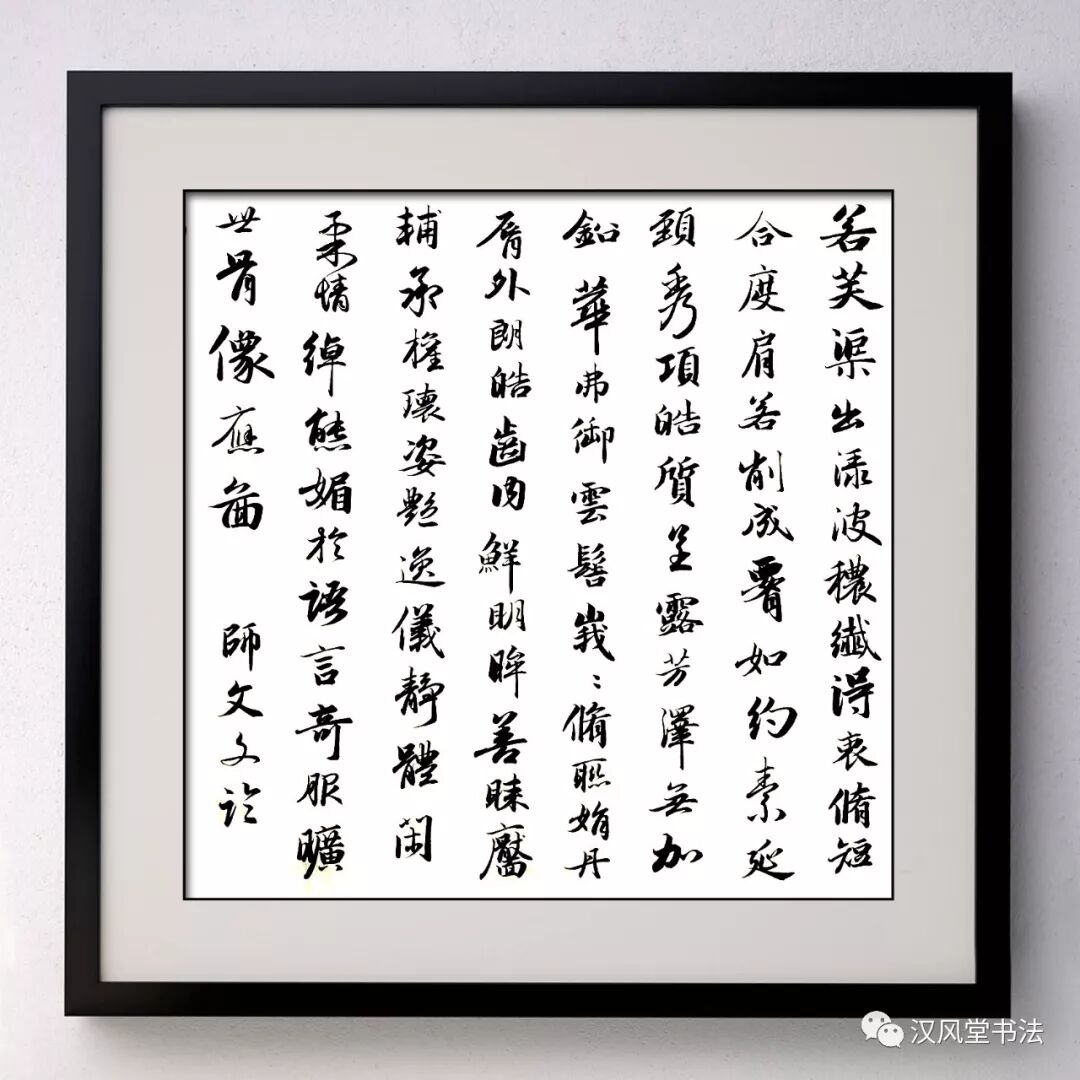 若芙渠出渌波穠纖淂衷脩短
合度肩若削成署如約素延
頸秀項皓質呈露芳澤無加
鉛華弗御雲髻峩〻脩聯娟丹
脣外朗皓齒内鮮明眸善睞靨
輔承權瓌姿艷逸儀靜體閑
柔情綽態媚於語言奇服曠
世骨像應圖
師文文論
汉风堂书法